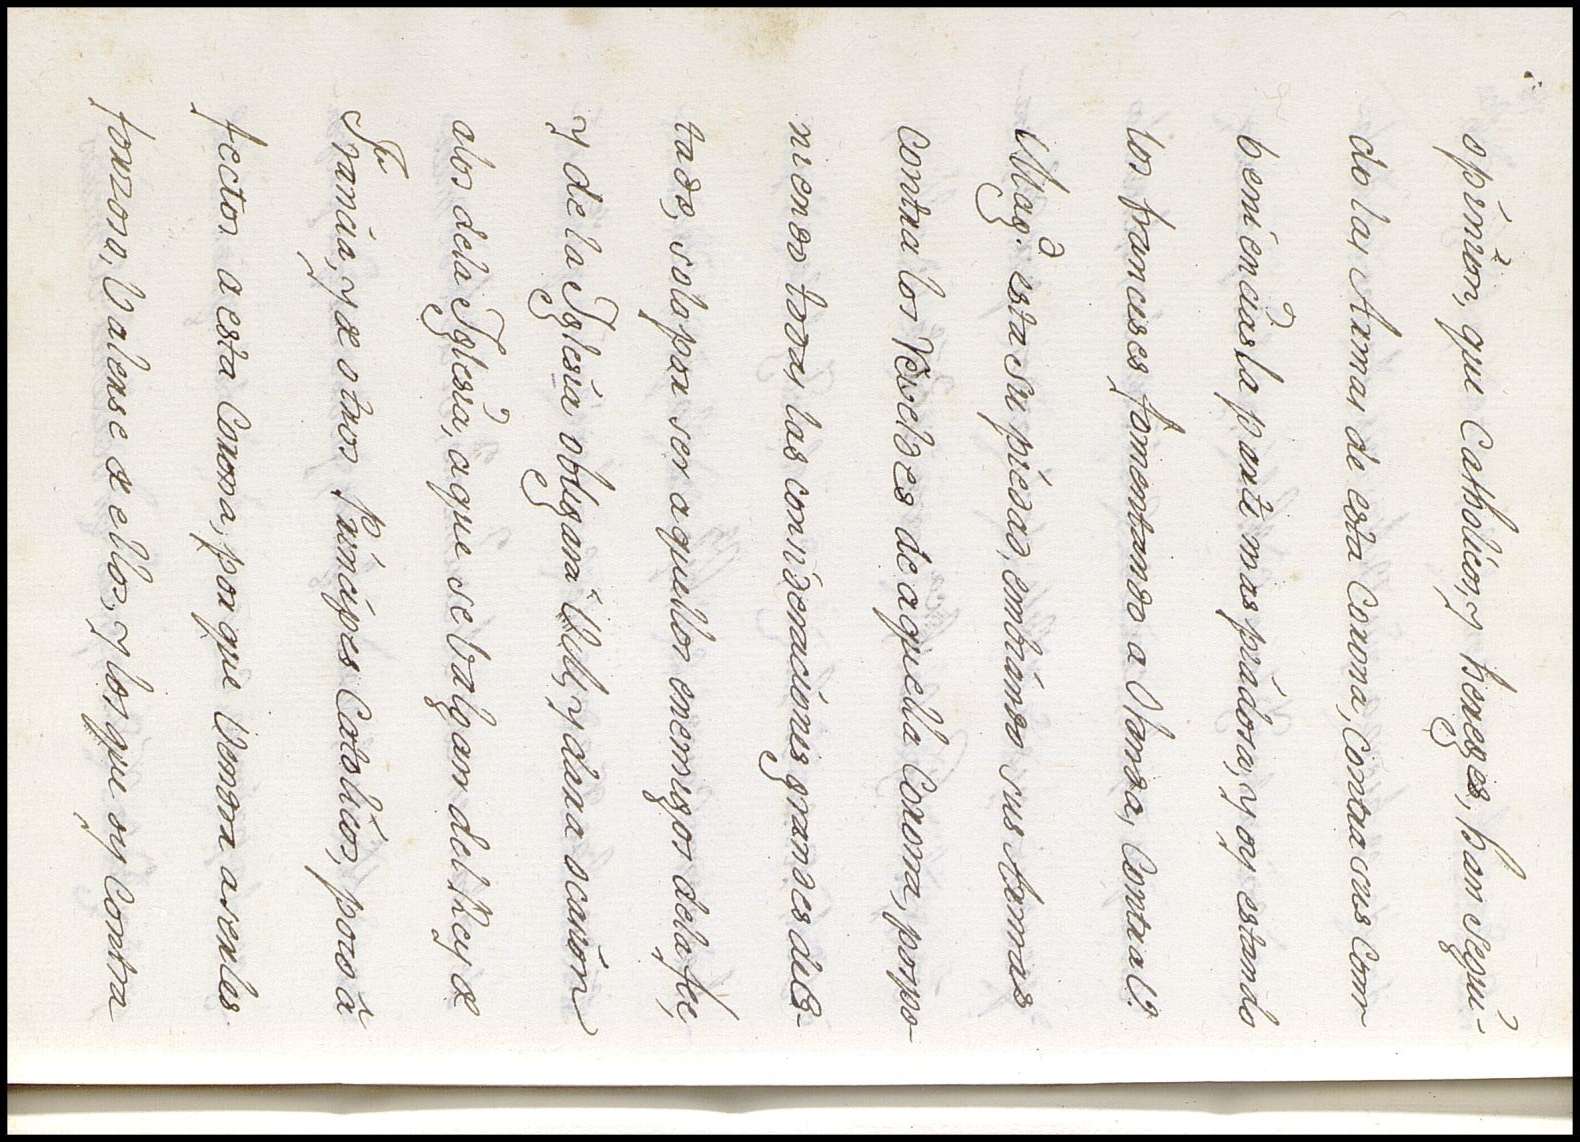 opinion, que Catholicos, y hereges, han segui-
do las Armas de esta Corona, contra sus Com
beniencias la parte mas piadosa, y oy estando
los franceses fomentando a Olanda, Contra V.
Mag.d esta su piedad, embiando sus Armas
contra los Rebeldes de aquella Corona, pospo-
niendo todas las consideraciones grandes de es-
tado, solo por ser aquellos enemigos de la fee,
y de la Iglesia obligara V.M. y dara ocasion
alos dela Iglesia, a que se balgan del Rey de
Francia, y de otros Principes Catolicos, poco a
fectos a esta Corona, por que Vendra a serles
forzoso, Valerse de ellos, y los que oy Contra